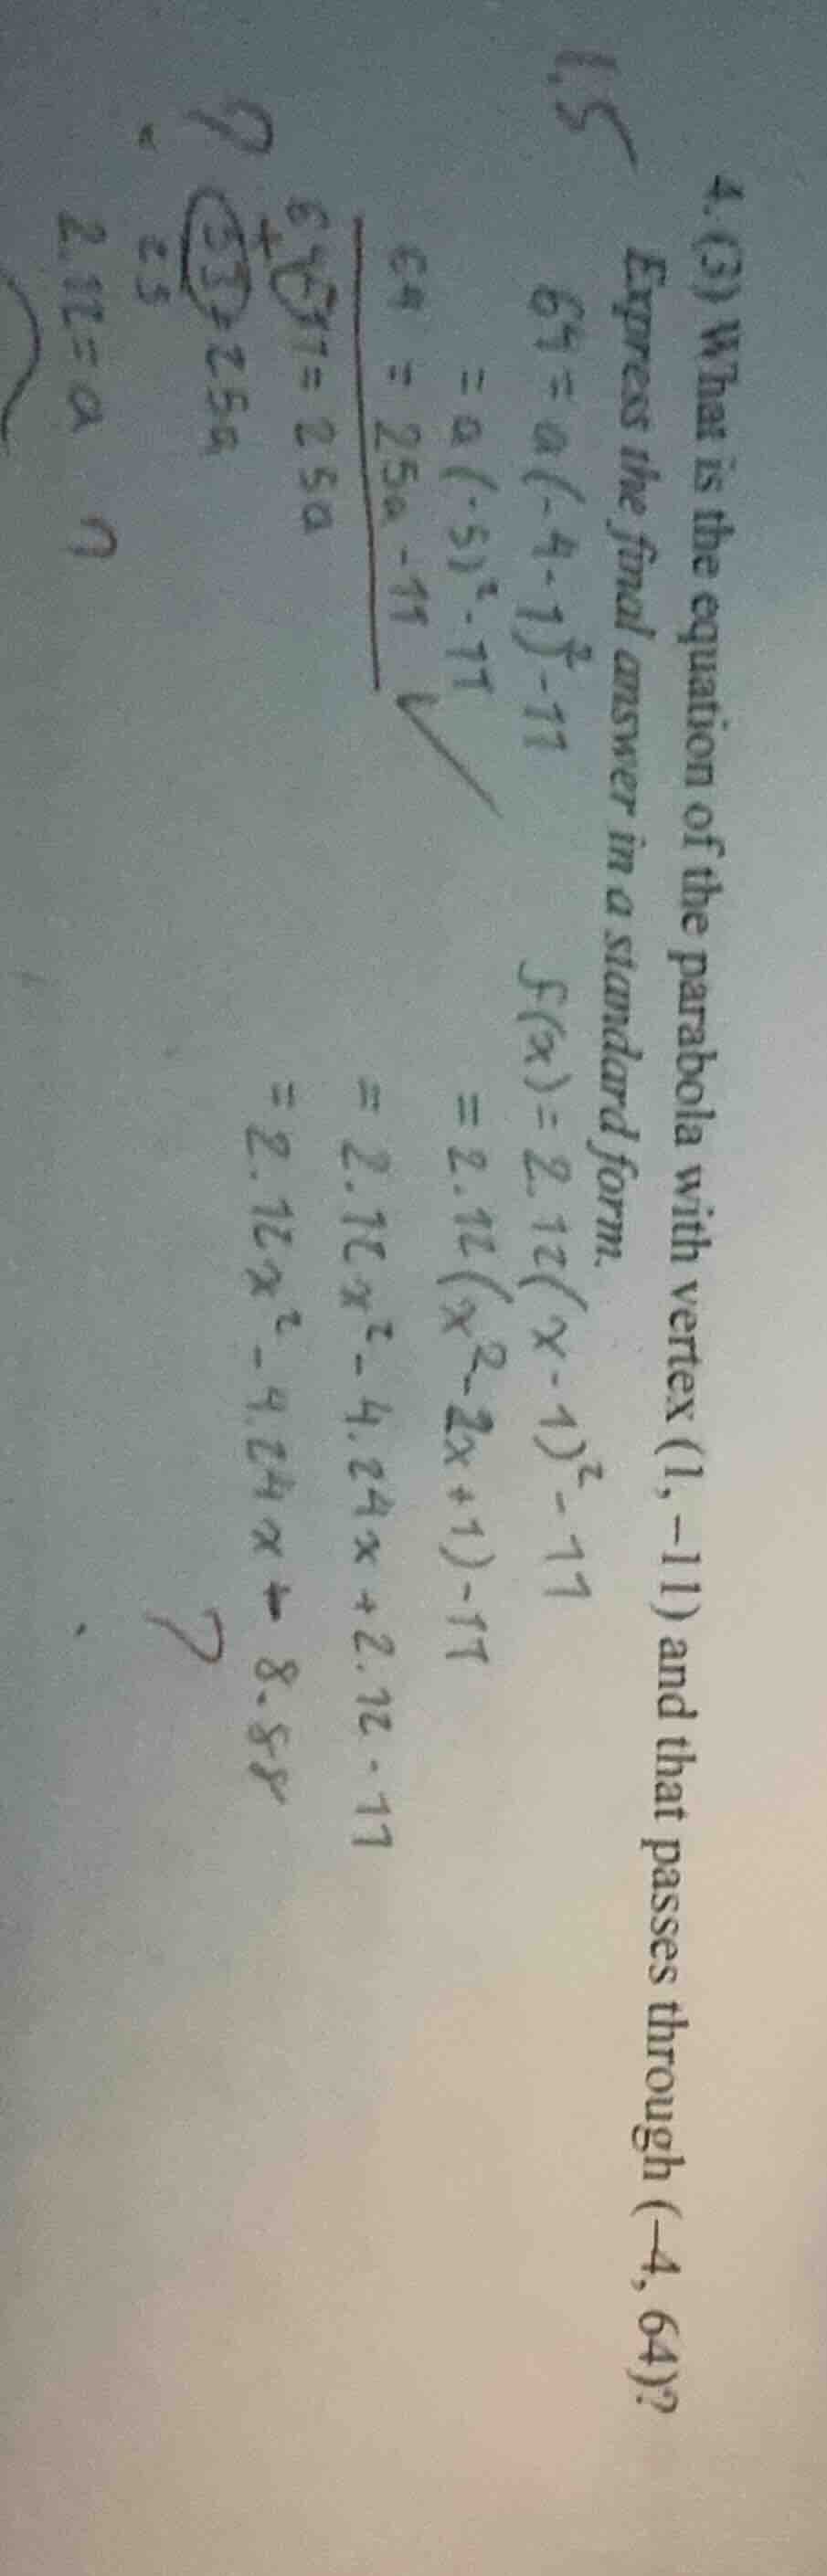 4. (3) What is the equation of the parabola with vertex (1, –11) and that passes through (–4, 64)?
Express the final answer in a standard form.
1.5
64 = a(-4-1)² -11
= a(-5)² -11
64 = 25a -11
64 + 11 = 25a
53 = 25a
25
2.12 = a
?
f(x) = 2.12(x-1)² -11
= 2.12(x² -2x+1) -11
= 2.12x² - 4.24x + 2.12 - 11
= 2.12x² - 4.24x - 8.88
?